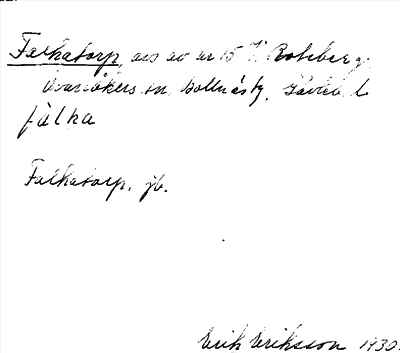 Falkatorp, avs av nr 15 V Roteberg
Ovanåkers sn, Bollnäs tg, Gävleb. l.
fàlka
Falkatorp. jb.
Erik Eriksson 1930.